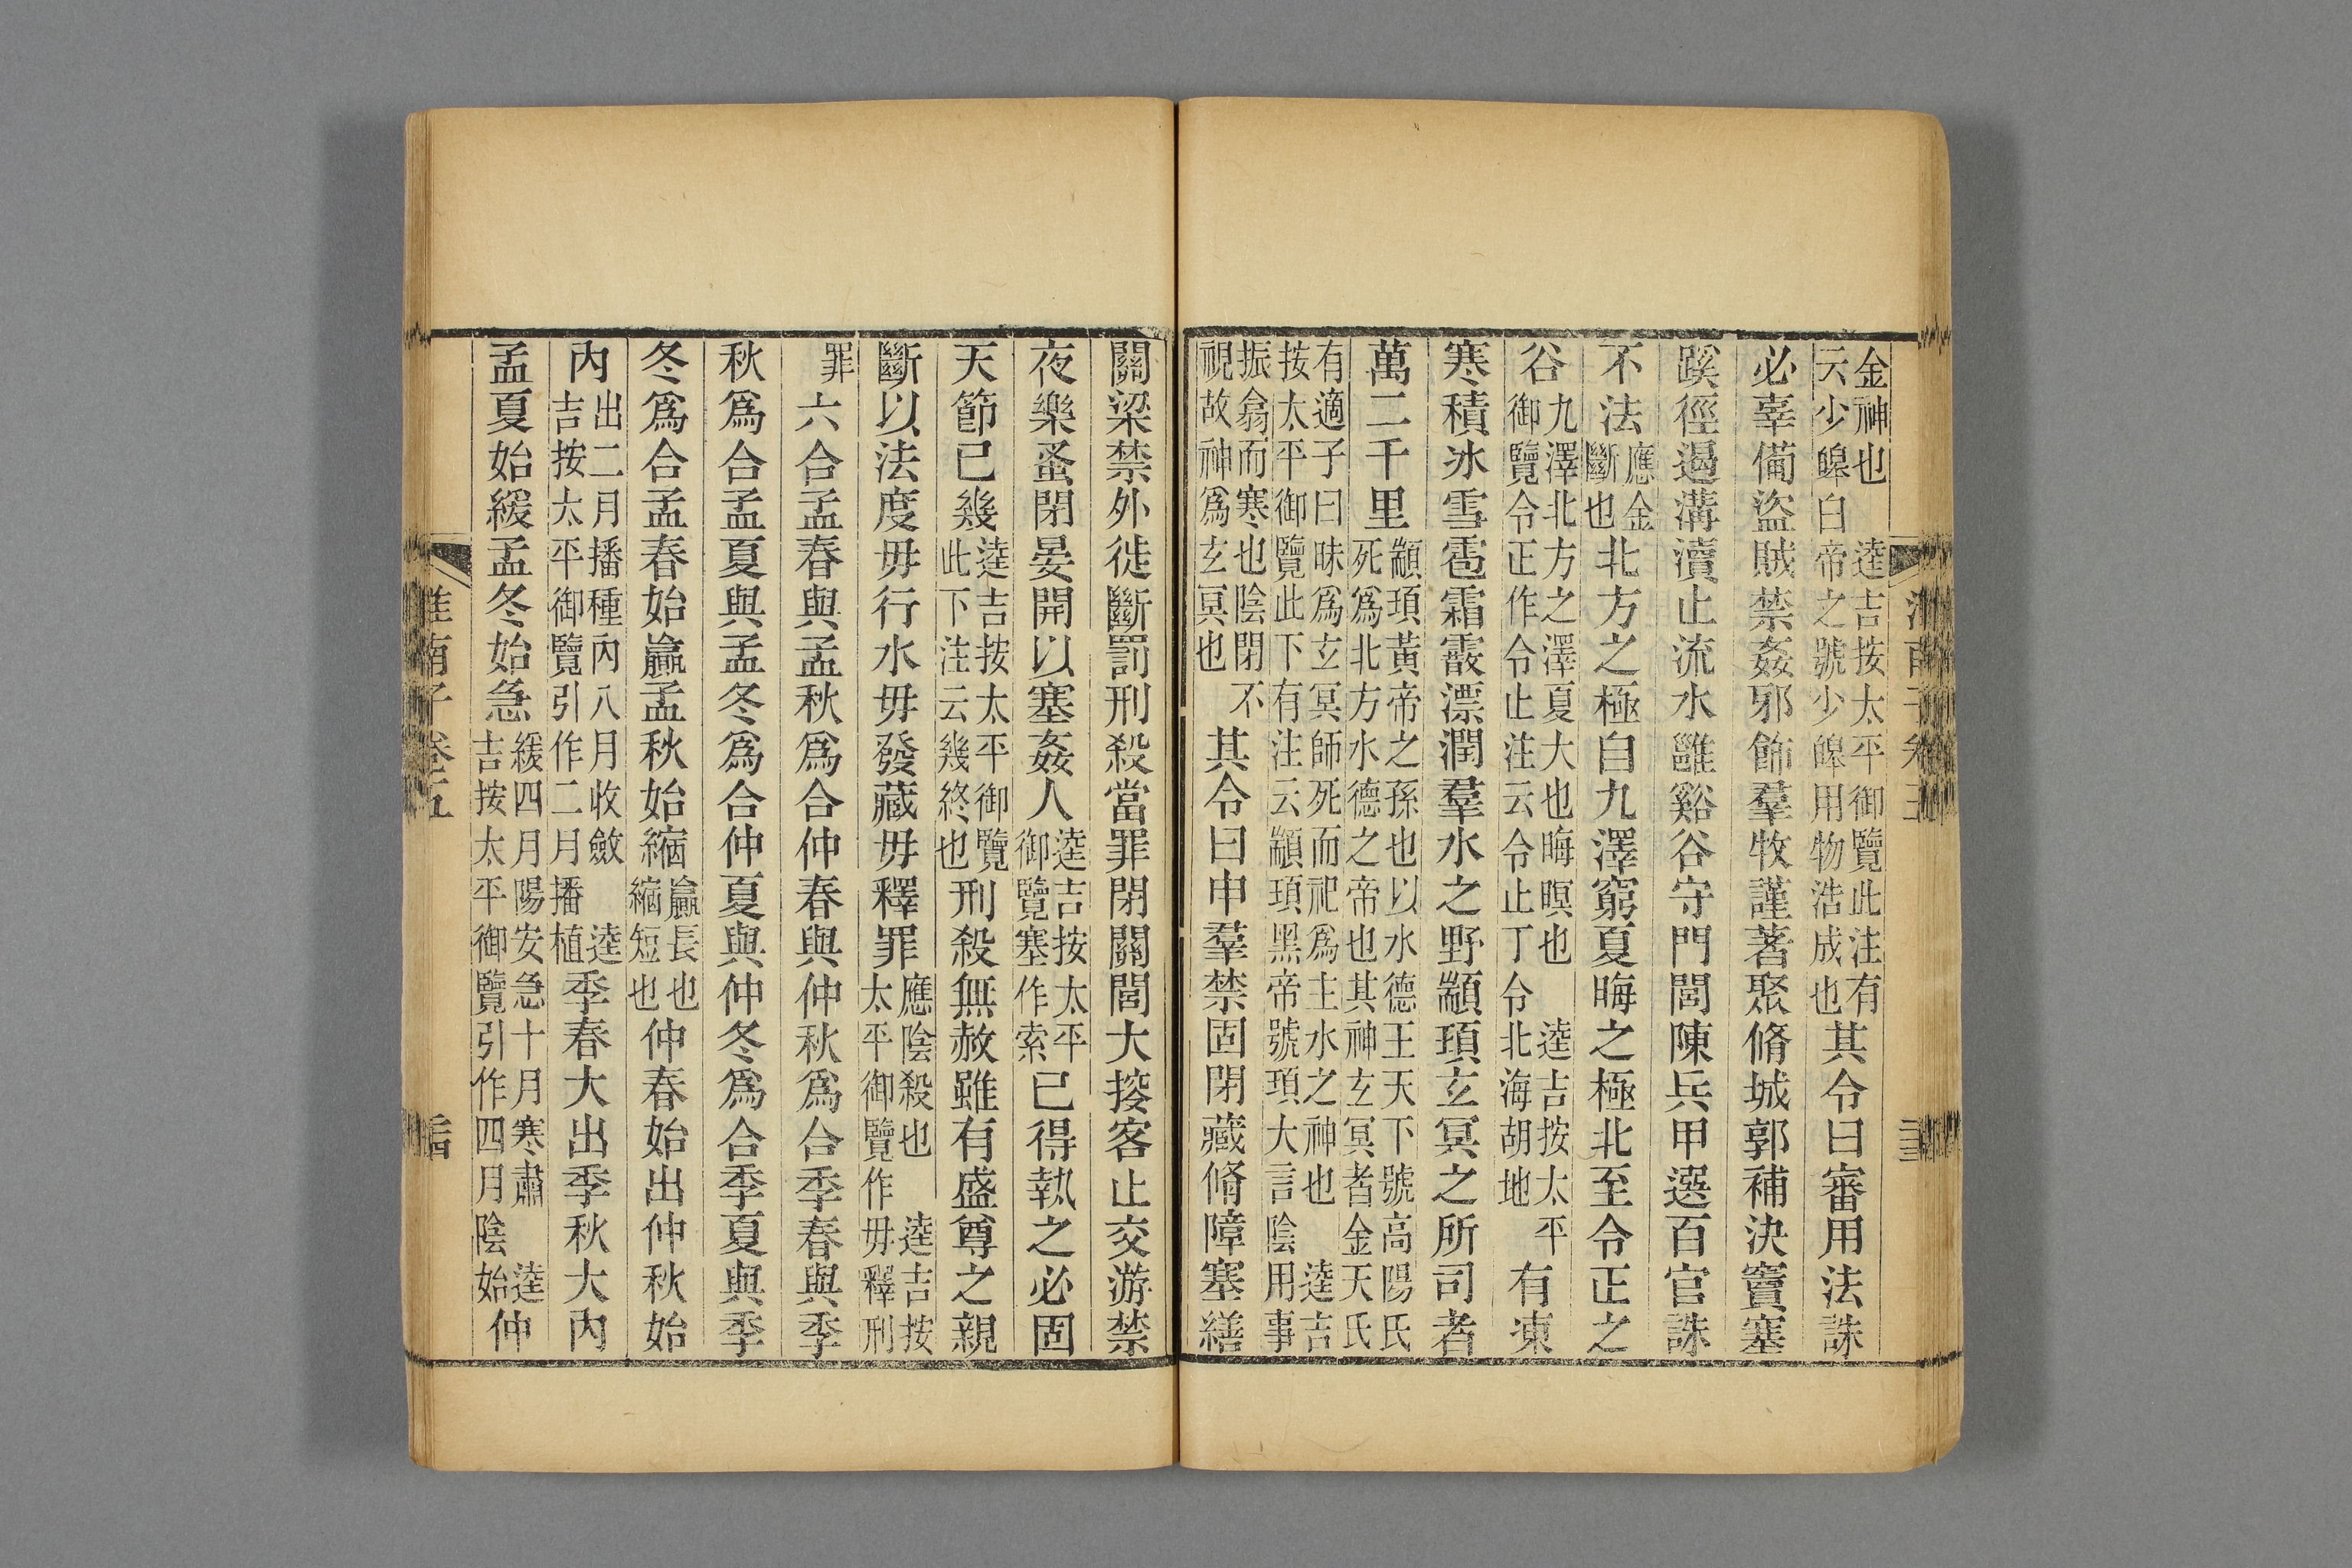 金神也　逵吉按太平御覽此注有云少皥白帝之號少皥用物浩成也其令曰審用法誅
必辜備盜賊禁姦邪飾羣牧謹著聚脩城郭補決竇塞
蹊徑遏溝瀆止流水雝谿谷守門閭陳兵甲選百官誅
不法應金斷也北方之極自九澤窮夏晦之極北至令正之
谷九澤北方之澤夏大也晦暝也　逵吉按太平御覽令正作令止注云令止丁令北海胡地有凍
寒積冰雪雹霜霰漂潤羣水之野顓頊玄冥之所司者
萬二千里顓頊黃帝之孫也以水德王天下號高陽氏死爲北方水德之帝也其神玄冥者金天氏
有適子曰昧爲玄冥師死而祀爲主水之神也　逵吉按太平御覽此下有注云顓頊黑帝號頊大言陰用事
振翕而寒也陰閉不視故神爲玄冥也其令曰申羣禁固閉藏脩障塞繕
關梁禁外徙斷罰刑殺當罪閉關閭大搜客止交游禁
夜樂蚤閉晏開以塞姦人逵吉按太平御覽塞作索已得執之必固
天節已幾逵吉按太平御覽此下注云幾終也刑殺無赦雖有盛尊之親
斷以法度毋行水毋發藏毋釋罪應陰殺也　逵吉按太平御覽作毋釋刑
罪六合孟春與孟秋爲合仲春與仲秋爲合季春與季
秋爲合孟夏與孟冬爲合仲夏與仲冬爲合季夏與季
冬爲合孟春始贏孟秋始縮贏長也縮短也仲春始出仲秋始
內出二月播種內八月收斂　逵吉按太平御覽引作二月播植季春大出季秋大內
孟夏始緩孟冬始急緩四月陽安急十月寒肅　逵吉按太平御覽引作四月陰始仲
淮南子卷五